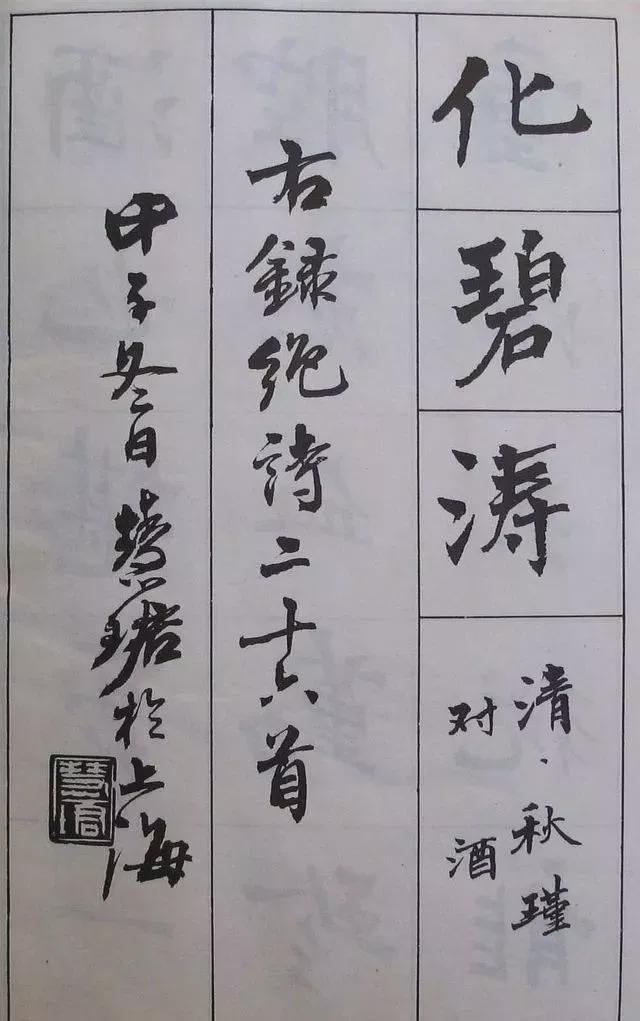 化碧涛
清·秋瑾
对酒
右録絶詩二十六首
甲子冬日慧珺於上海